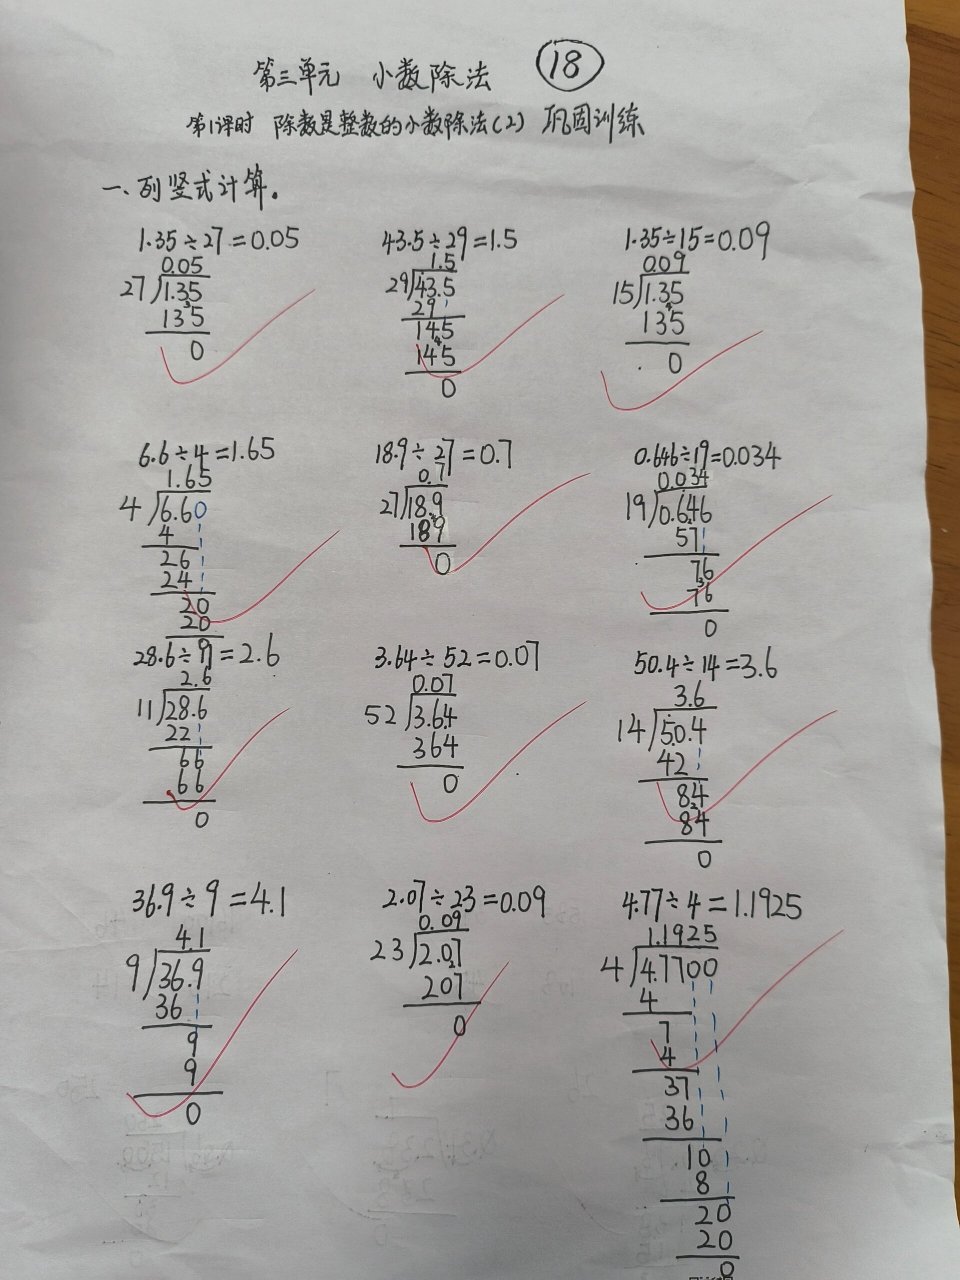 第三单元 小数除法 18
第1课时 除数是整数的小数除法(2) 巩固训练
一、列竖式计算。
1.35÷27=0.05 43.5÷29=1.5 1.35÷15=0.09
0.05 1.5 0.09
27 1.35 29 43.5 15 1.35
135 29 135
0 145 0
145
0
6.6÷4=1.65 18.9÷27=0.7 0.646÷19=0.034
1.65 0.7 0.034
4 6.60 27 18.9 19 0.646
4 189 57
26 0 76
24 76
20 0
20
28.6÷11=2.6 3.64÷52=0.07 50.4÷14=3.6
2.6 0.07 3.6
11 28.6 52 3.64 14 50.4
22 364 42
66 0 84
66 84
0 0
36.9÷9=4.1 2.07÷23=0.09 4.77÷4=1.1925
4.1 0.09 1.1925
9 36.9 23 2.07 4 4.7700
36 207 4
9 0 7
9 4
0 37
36
10
8
20
20
0